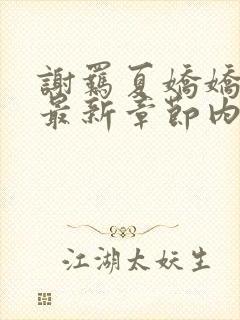 謝羈夏嬌嬌
最新章節內
江湖太妖生